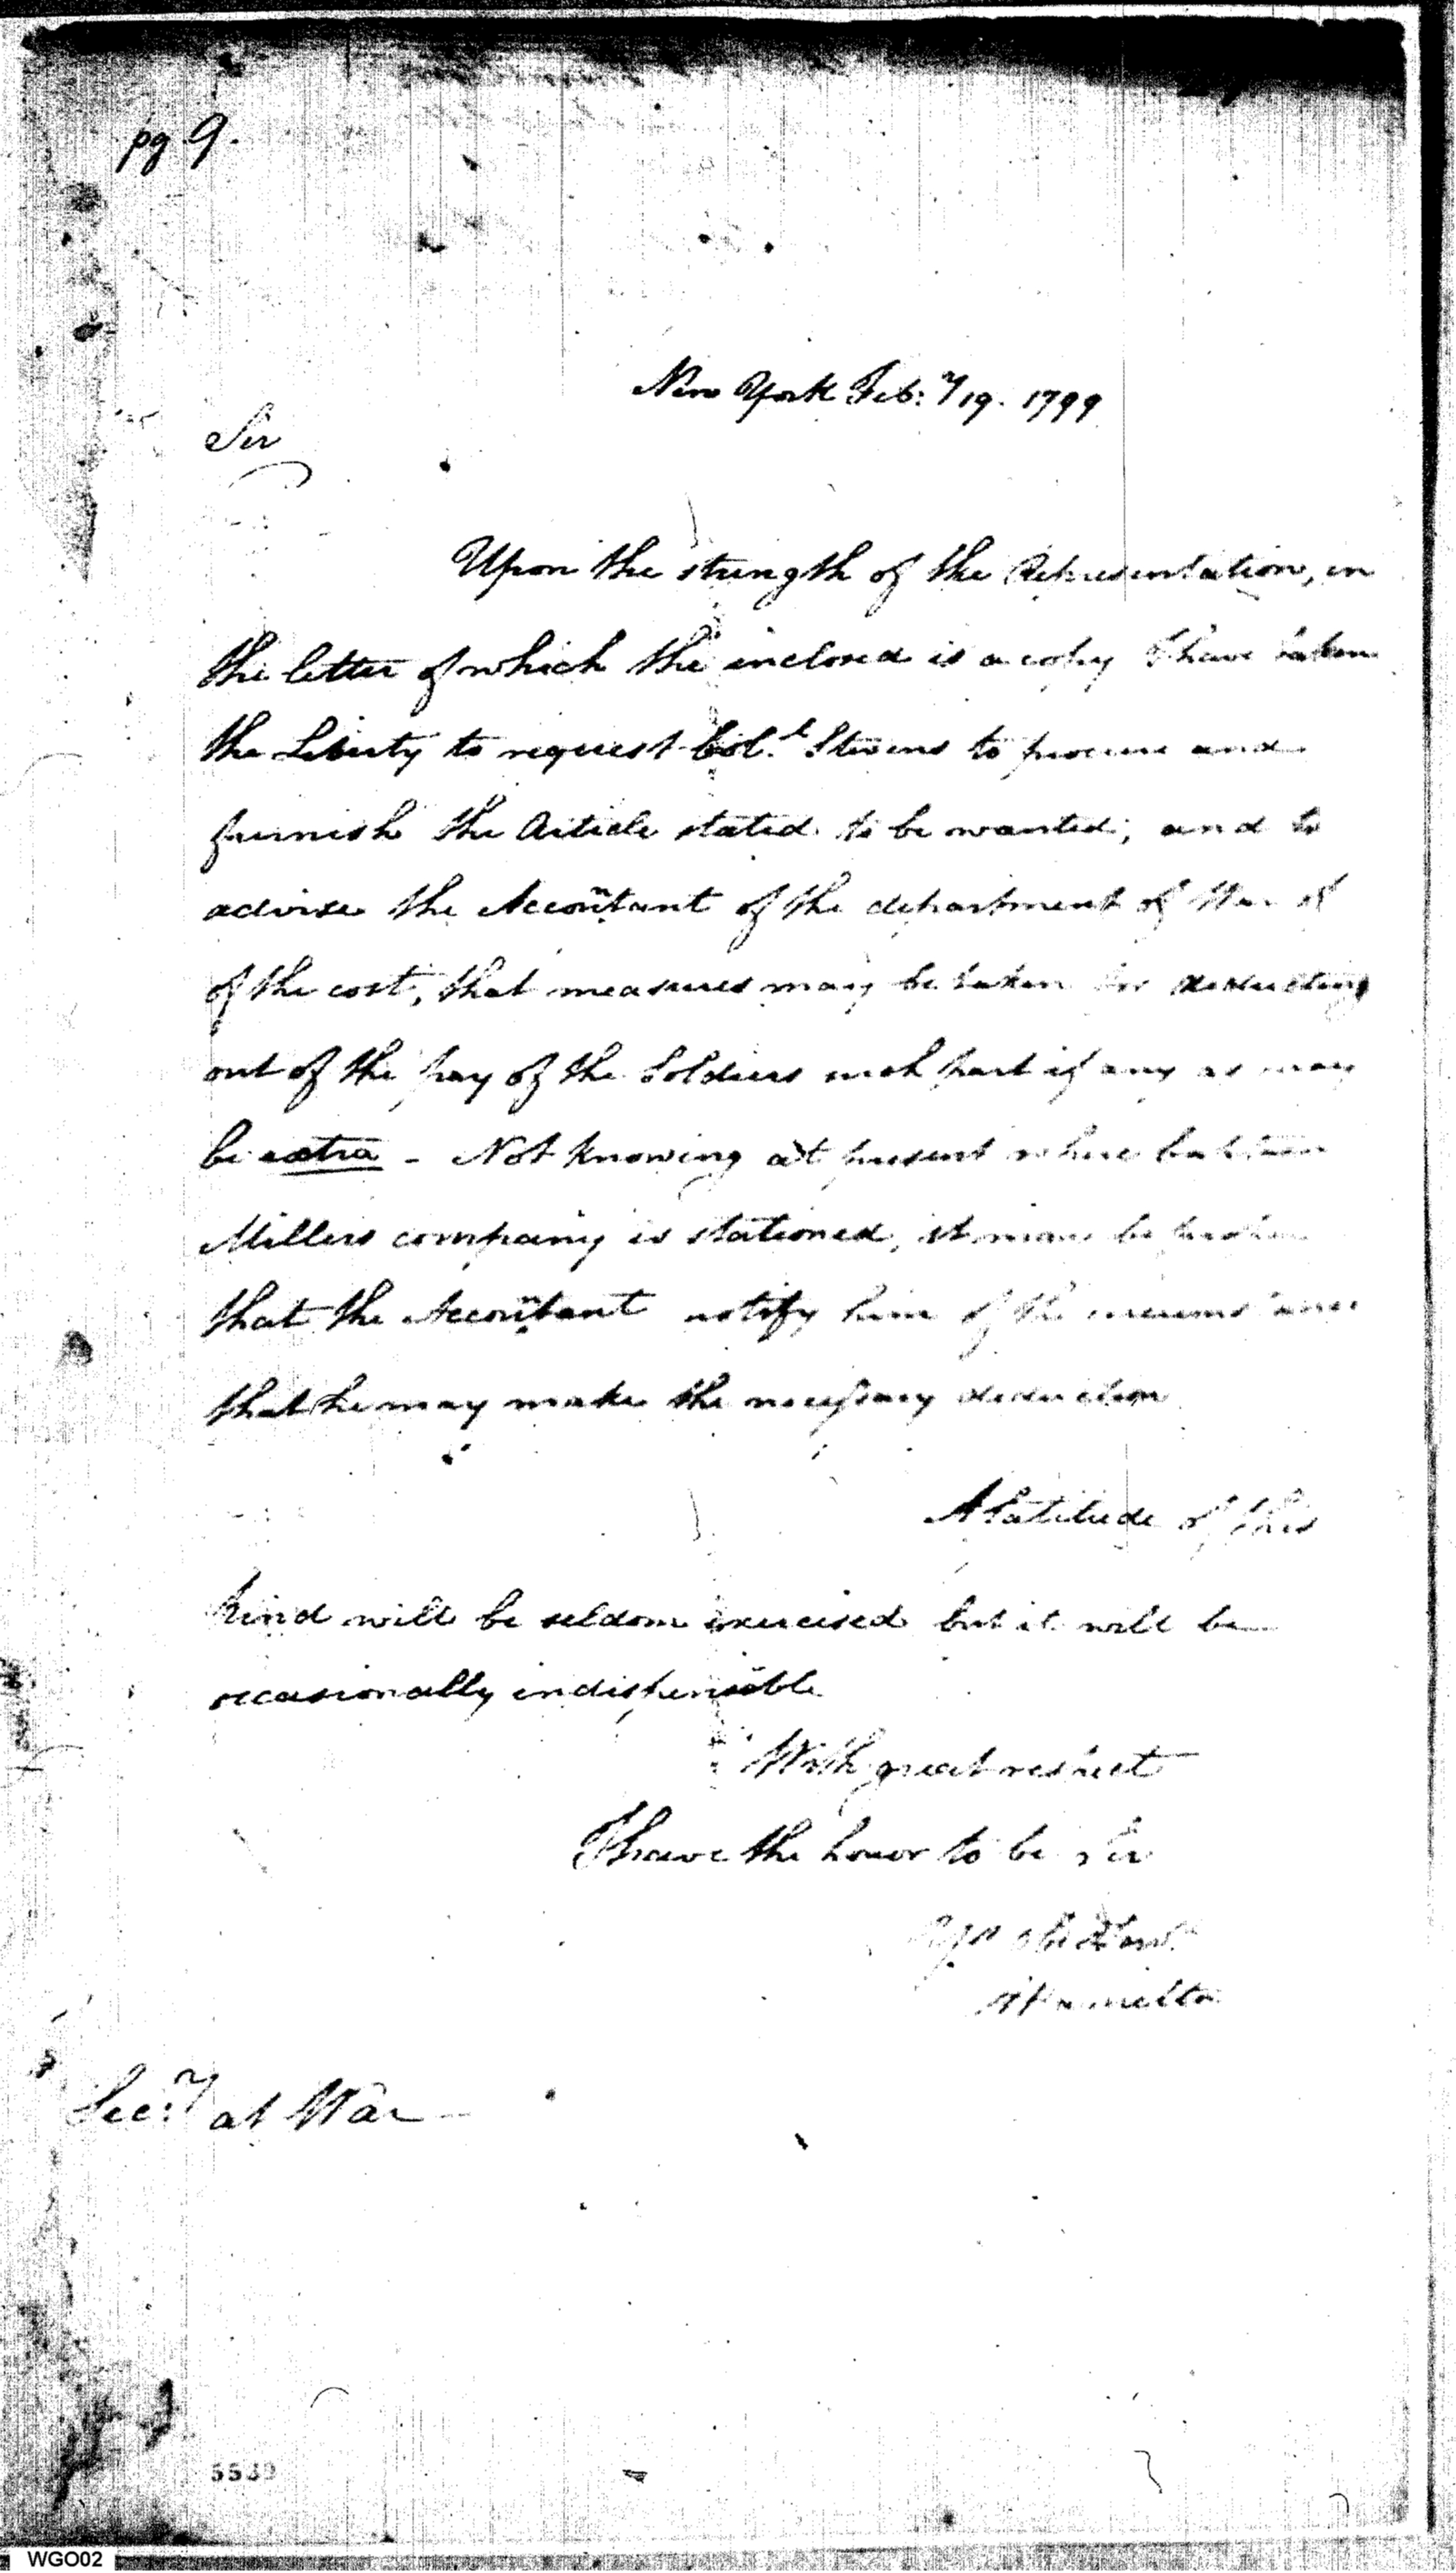 pg 9.
New York Feb:y 19. 1799
Sir
Upon the strength of the Representation, in
the letter of which the inclosed is a copy I have taken
the Liberty to request Col.l Stevens to procure and
furnish the Article stated to be wanted; and to
advise the Accountant of the department of War of
of the cost, that measures may be taken for deducting
out of the pay of the Soldiers such part if any as may
be extra - Not knowing at present where Captain
Millers company is stationed, it may be
that the Accountant notify him of the circumstance
that he may make the necessary deduction
A Latitude of this
kind will be seldom exercised but it will be
occasionally indispensible
With great respect
I have the honor to be Sir
A Hamilton
Sec:y at War
WGO02